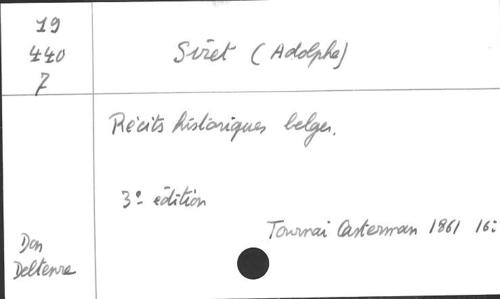 19
440
7
Siret (Adolphe)
Récits historiques belges.
3e édition
Tournai Casterman 1861 16:
Don
Deltenre